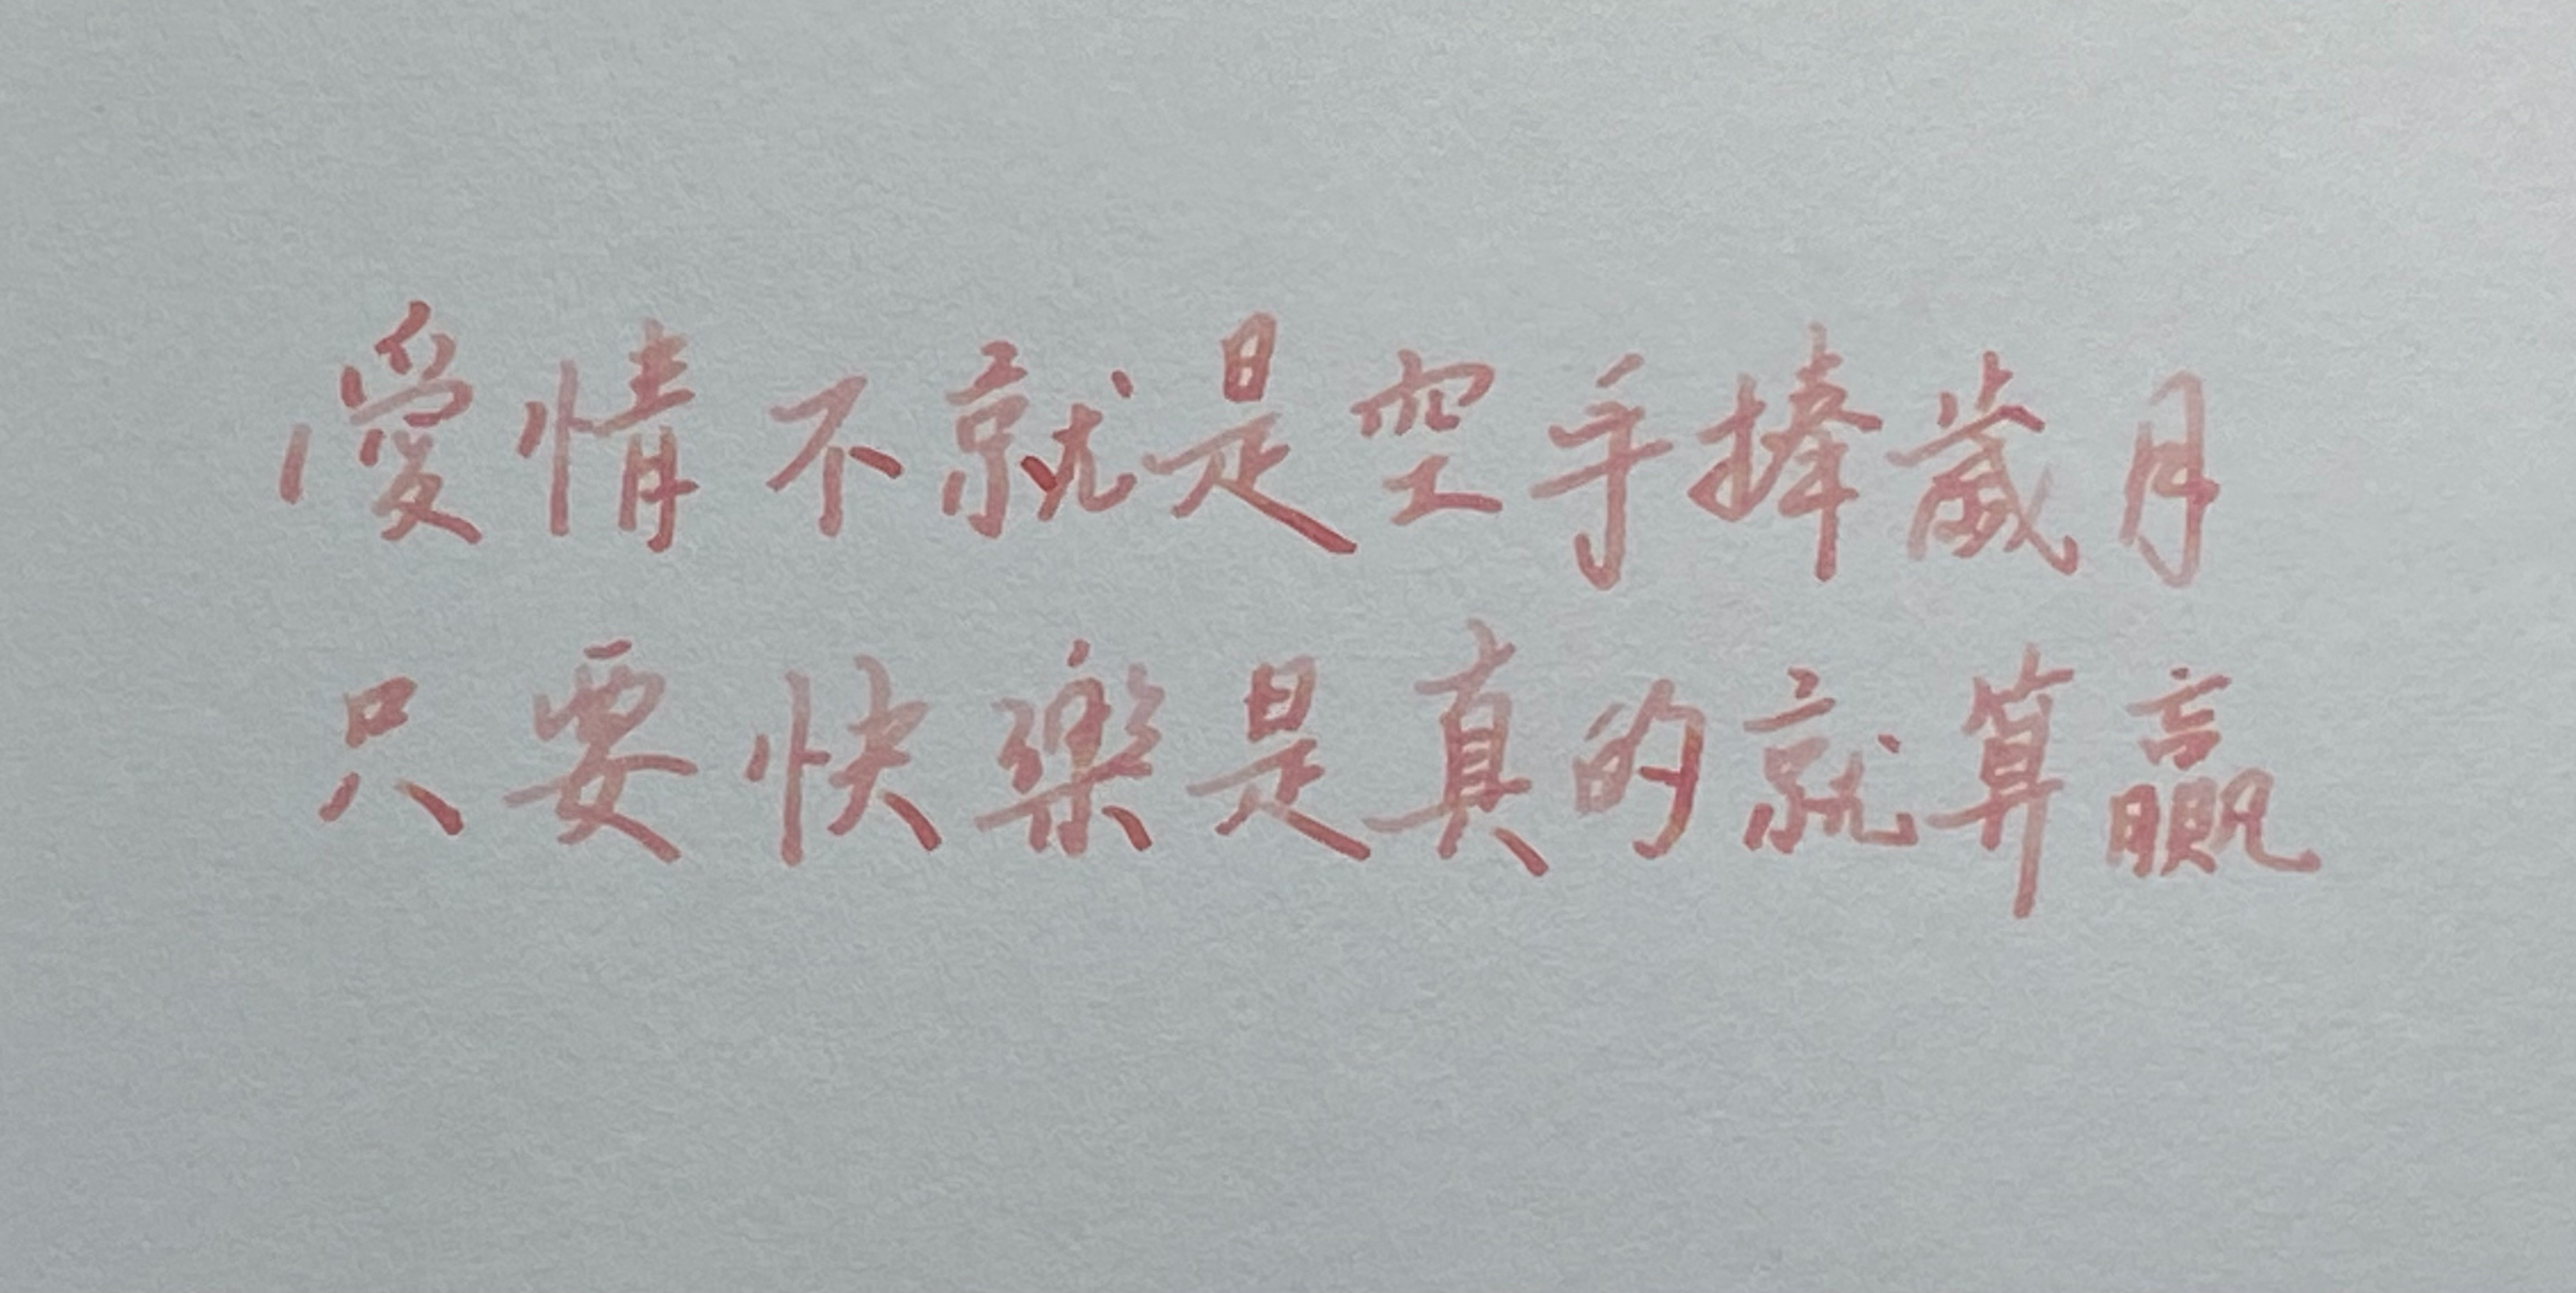 愛情不就是空手捧歲月
只要快樂是真的就算贏